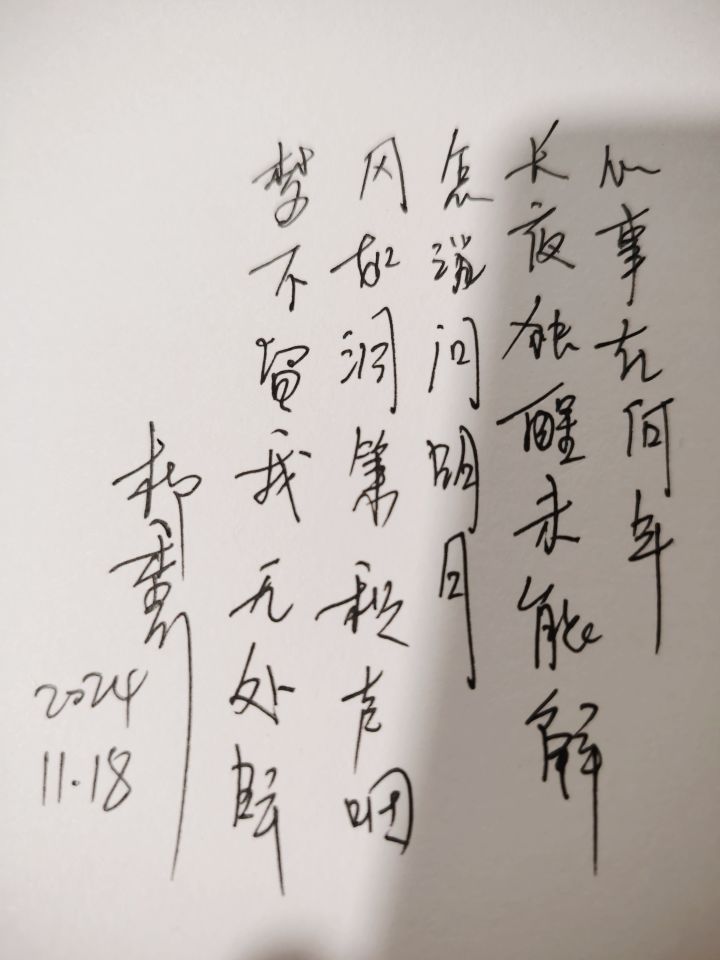 心事在何年
长夜独醒未能解
怎问明月
风如洞箫声咽
梦不留我无处
2024
11.18